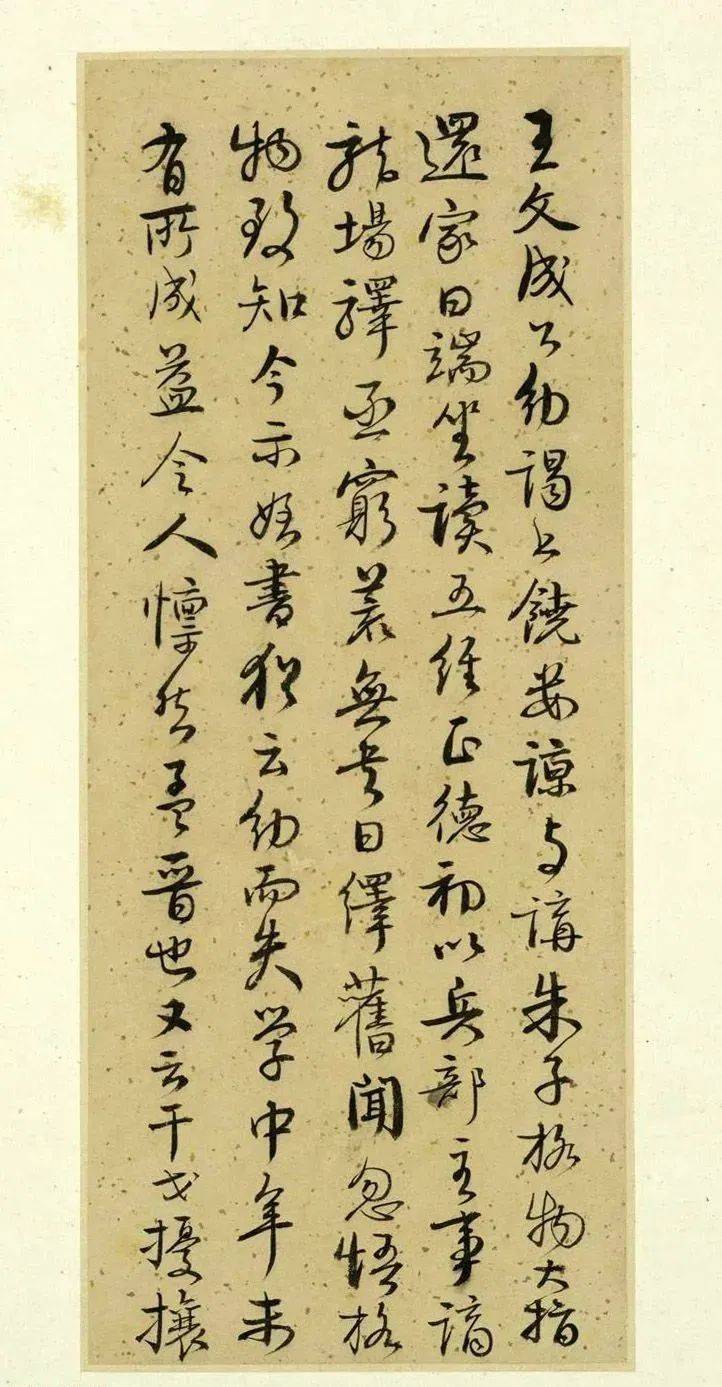 王文成公幼謁上饒婁諒與講朱子格物大指
還家日端坐讀五經正德初以兵部主事謫
龍場驛丞窮荒無書日繹舊聞忽悟格
物致知今示姪書猶云幼而失學中年未
有所成益令人懍然孟晉也又云干戈擾攘